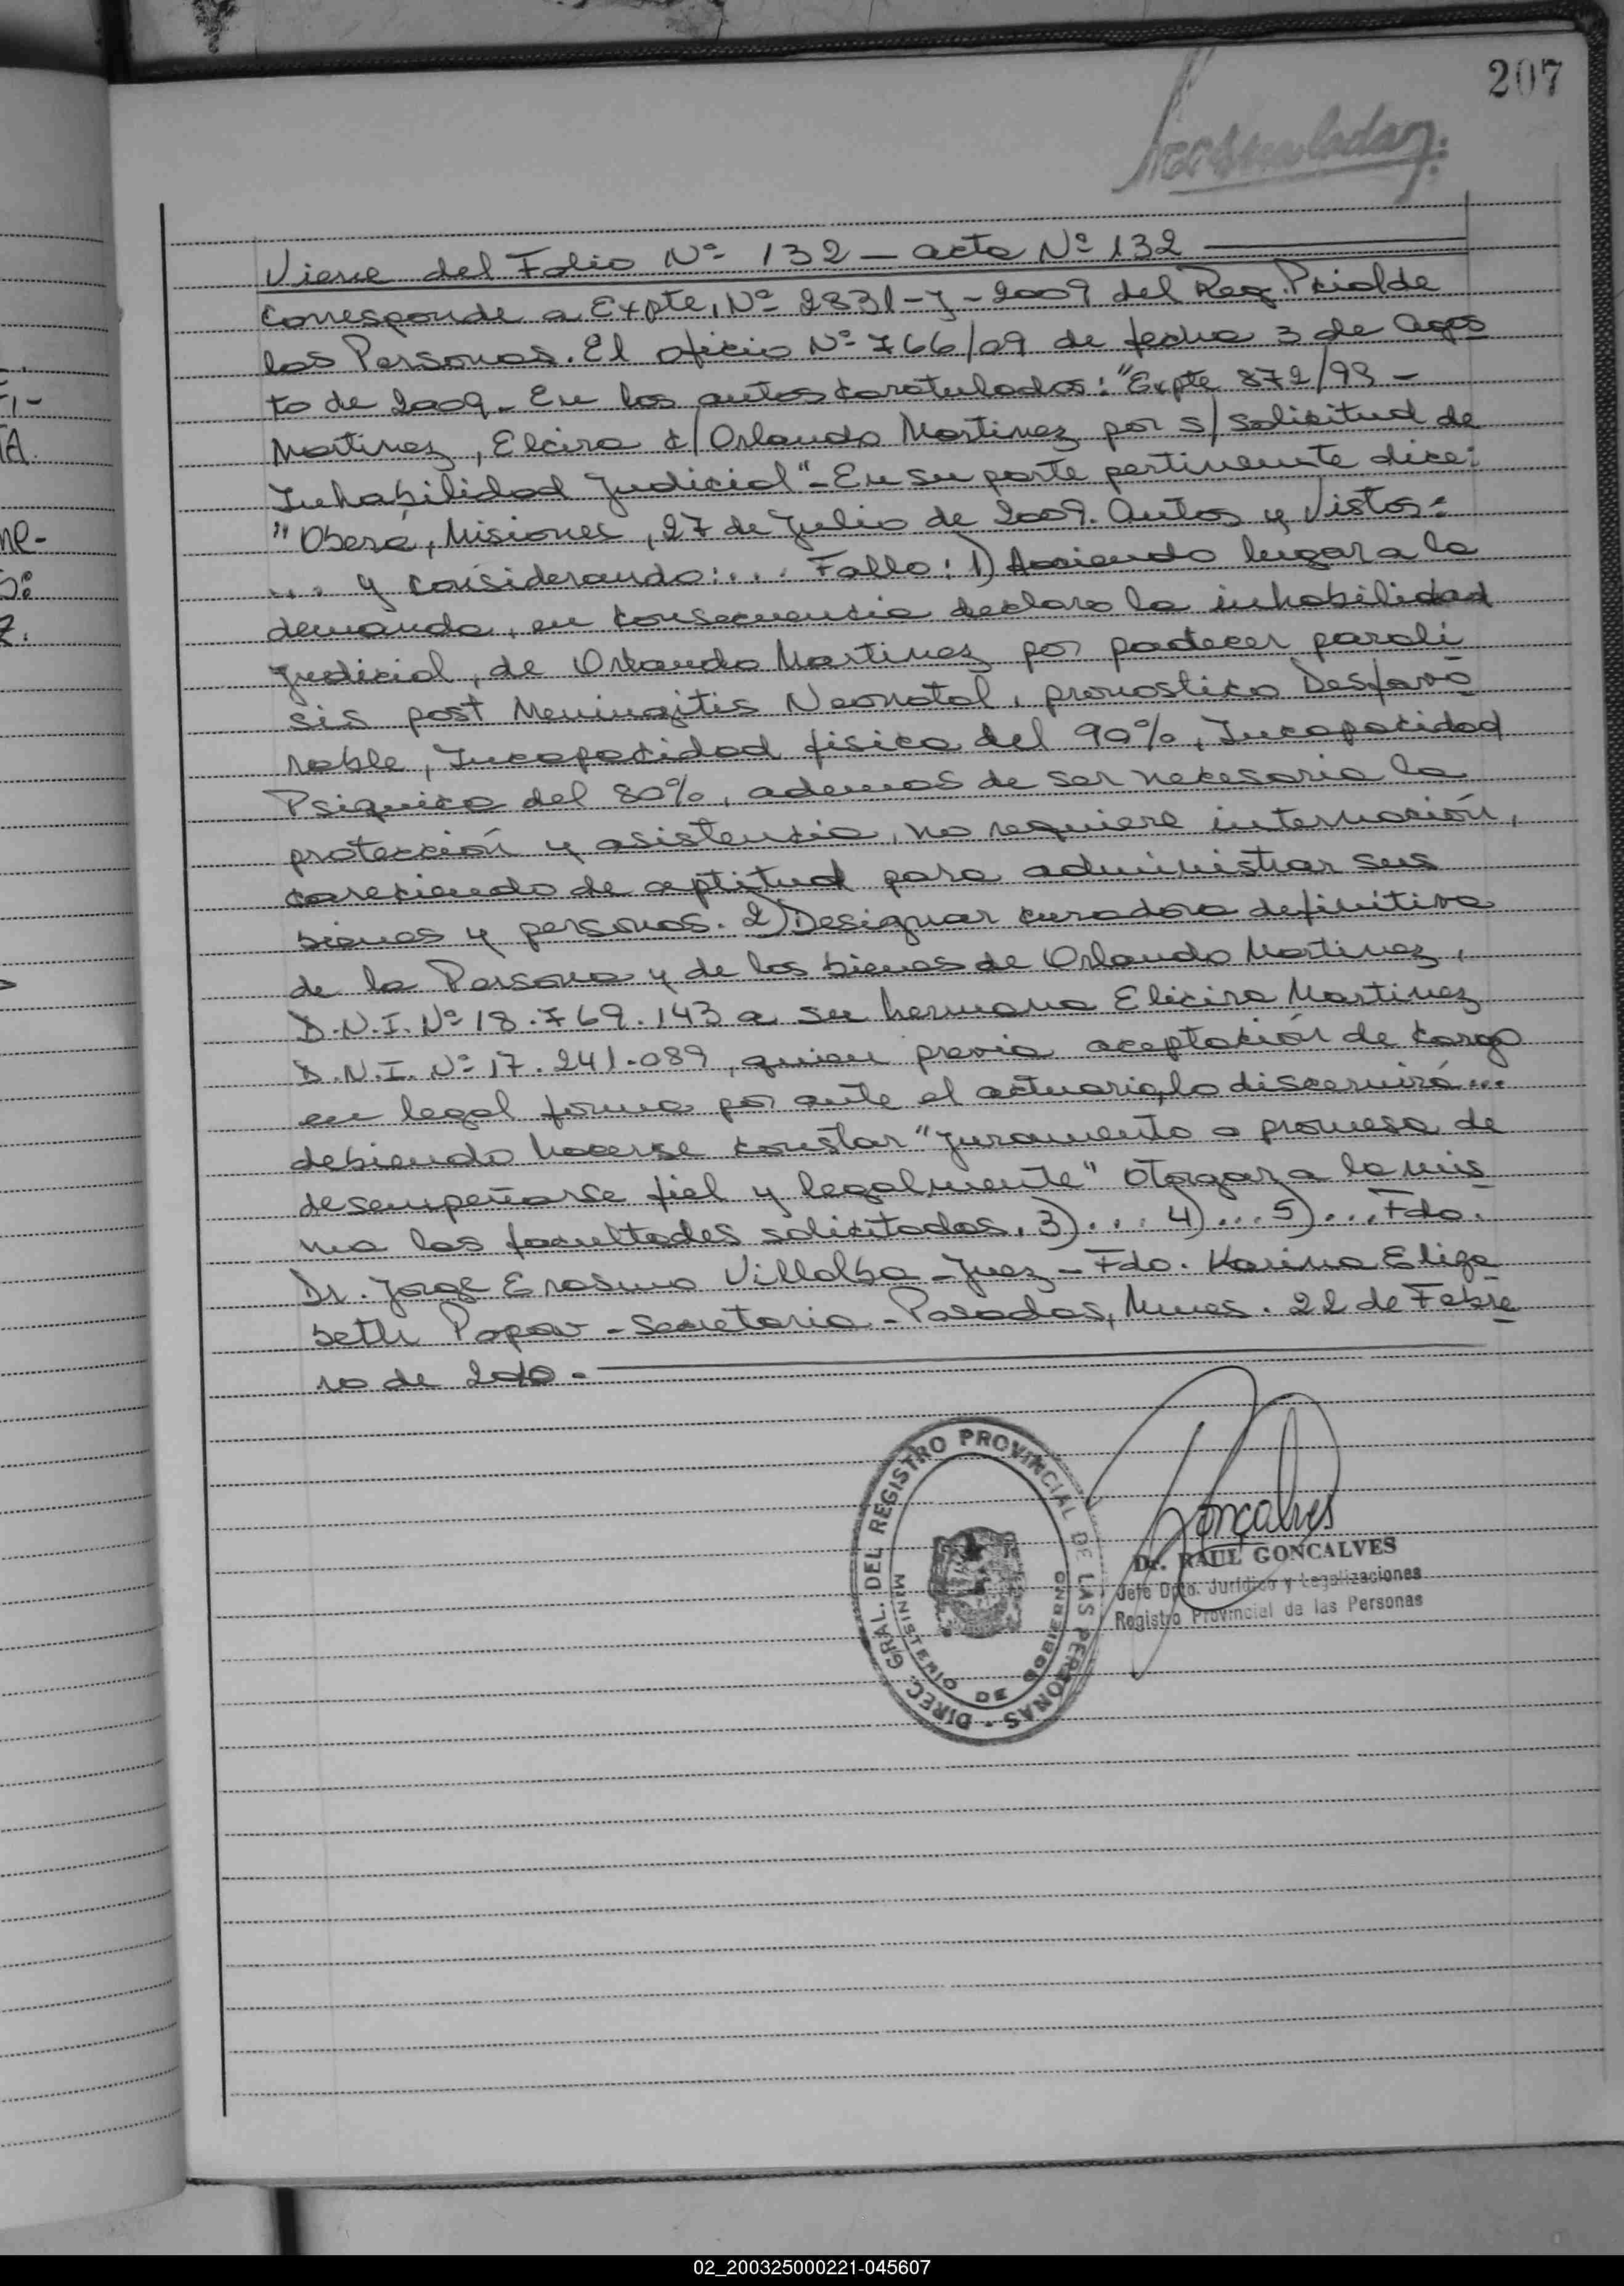 207
Viene del Folio Nº 132 — acta Nº 132
Corresponde a Expte, Nº 2831-J-2009 del Reg. Pcial de
las Personas. El oficio Nº 766/09 de fecha 3 de Agos
to de 2009. En los autos caratulados: "Expte 872/98 -
Martinez, Elcira c/ Orlando Martinez por s/ solicitud de
Inhabilidad Judicial" - En su parte pertinente dice:
"Oberá, Misiones, 27 de Julio de 2009. Autos y Vistos:
... y considerando: ... Fallo: 1) Haciendo lugar a la
demanda, en consecuencia declaro la inhabilidad
judicial, de Orlando Martinez por padecer paráli
sis post Meningitis Neonatal, pronostico Desfavo
rable, Incapacidad fisica del 90%, Incapacidad
Psiquica del 80%, ademas de ser necesaria la
protección y asistencia, no requiere internación,
careciendo de aptitud para administrar sus
bienes y personas. 2) Designar curadora definitiva
de la Persona y de los bienes de Orlando Martinez,
D.N.I. Nº 18.769.143 a su hermana Elicira Martinez
D.N.I. Nº 17.241.089, quien previa aceptación de cargo
en legal forma por ante el actuario, lo discernirá...
debiendo hacerse constar "juramento o promesa de
desempeñarse fiel y legalmente" otorgar a la mis
ma las facultades solicitadas. 3) ... 4) ... 5) ... Fdo.
Dr. Jorge Erasmo Villalba - Juez - Fdo. Karina Eliza
beth Popov - Secretaria - Posadas, Mnes. 22 de Febre
ro de 2010.
DIREC. GRAL. DEL REGISTRO PROVINCIAL DE LAS PERSONAS
MINISTERIO DE GOBIERNO
Goncalves
Dr. RAUL GONCALVES
Jefe Dpto. Jurídico y Legalizaciones
Registro Provincial de las Personas
TA.
02_200325000221-045607